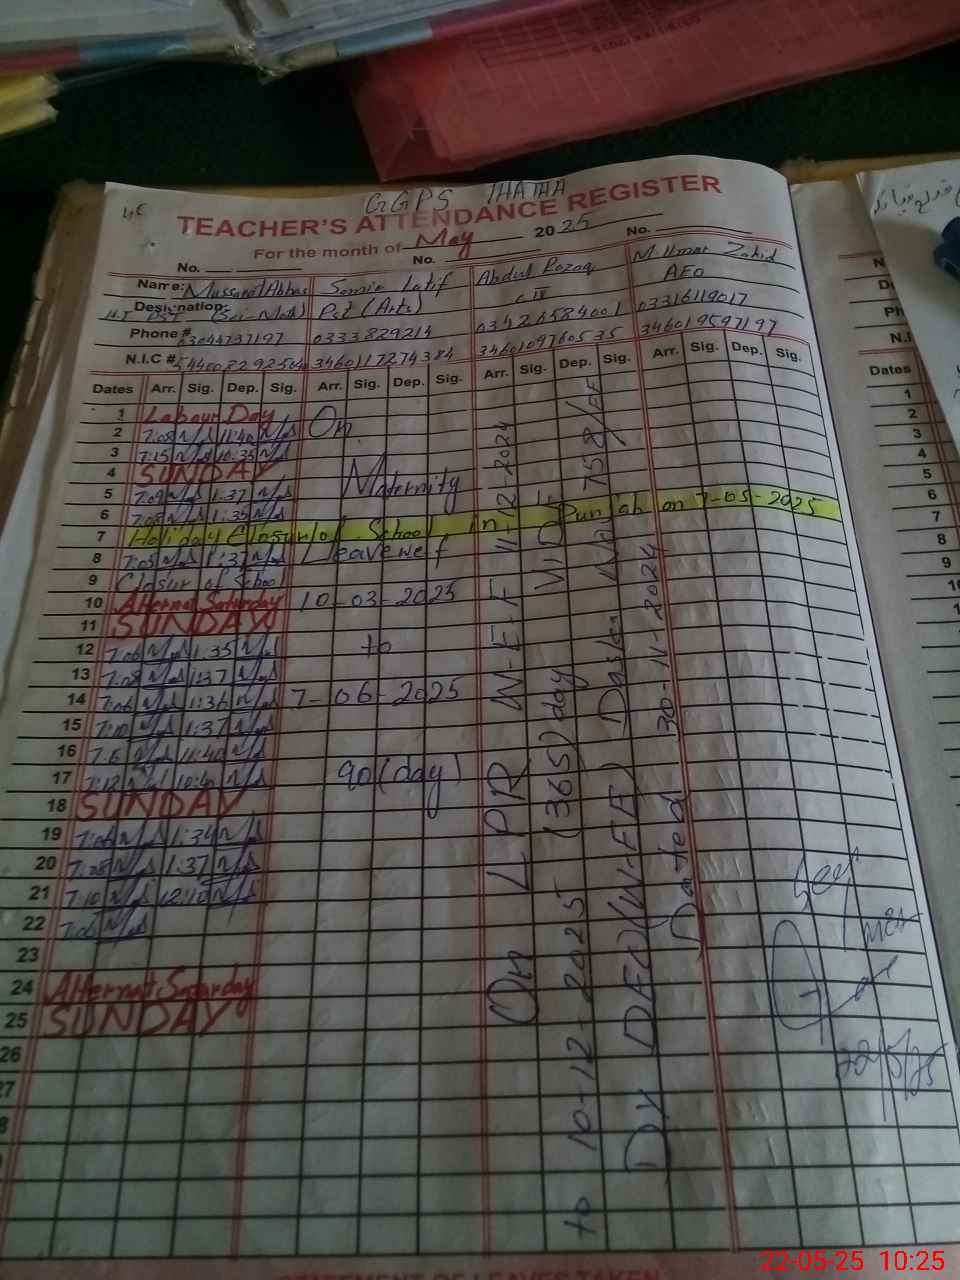 GGPS THATHA
TEACHER'S ATTENDANCE REGISTER
For the month of May 2025
No. No. No.
Name: Mussarat Abbas Samia Latif Abdul Rozaq M. Umar Zahid
Designation: PST (Sci-Math) Pst (Arts) C IV AEO
Phone # 0333829214 03426584001 03316119017
N.I.C # 3460117274384 3460109760535 3460195971 97
Dates Arr. Sig. Dep. Sig. Arr. Sig. Dep. Sig. Arr. Sig. Dep. Sig. Arr. Sig. Dep. Sig.
1 Labour Day
2 7:08 11:40 On
3 7:15 10:35
4 SUNDAY
5 7:09 1:37 Maternity
6 7:08 1:35
7 Holiday Closur of School in Punjab on 7-05-2025
8 7:05 1:37 Leave wef
9 Closur of School
10 Alternat Saturday 10-03-2025
11 SUNDAY
12 7:06 1:35 to
13 7:08 1:37
14 7:06 1:36 7-06-2025
15 7:10 1:37
16 7:6 11:40
17 7:12 90(day)
18 SUNDAY
19 7:06 1:34
20 7:08 1:37
21 7:10 12:10
22 7:06
23
24 Alternat Saturday
25 SUNDAY
26
27
On LPR W-E-F 11-12-2024
to 10-12-2025 (365) day VIDE
Dy DEO (W-EE) Daska No 758/EE
Dated 30-11-2024
22/5/25
STATEMENT OF LEAVES TAKEN
Dates
1
2
3
4
5
6
7
8
9
10
22-05-25 10:25